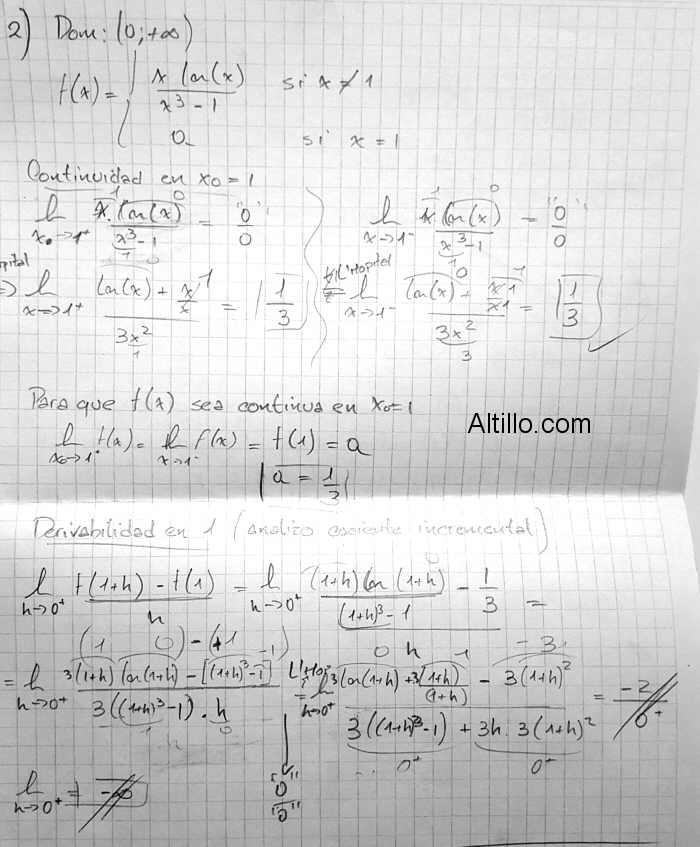 2) Dom: (0; +∞)
f(x) = { x ln(x) / x³ - 1 si x ≠ 1
a si x = 1
Continuidad en x₀ = 1
lim x→1⁺ x ln(x) / x³ - 1 = "0" / 0
lim x→1⁻ x ln(x) / x³ - 1 = "0" / 0
=> lim x→1⁺ ln(x) + x/x / 3x² = 1/3
L'Hopital lim x→1⁻ ln(x) + x 1/x / 3x² = 1/3
Para que f(x) sea continua en x₀=1
Altillo.com
lim x→1⁺ f(x) = lim x→1⁻ f(x) = f(1) = a
a = 1/3
Derivabilidad en 1 (analizo cociente incremental)
lim h→0⁺ f(1+h) - f(1) / h = lim h→0⁺ (1+h) ln(1+h) / (1+h)³ - 1 - 1/3 / h =
= lim h→0⁺ 3(1+h) ln(1+h) - [(1+h)³ - 1] / 3((1+h)³ - 1) . h L'Hop = lim h→0⁺ 3 ln(1+h) + 3(1+h)/(1+h) - 3(1+h)² / 3((1+h)³ - 1) + 3h . 3(1+h)² = -2 / 0⁺
"0" / "0"
lim h→0⁺ = -∞